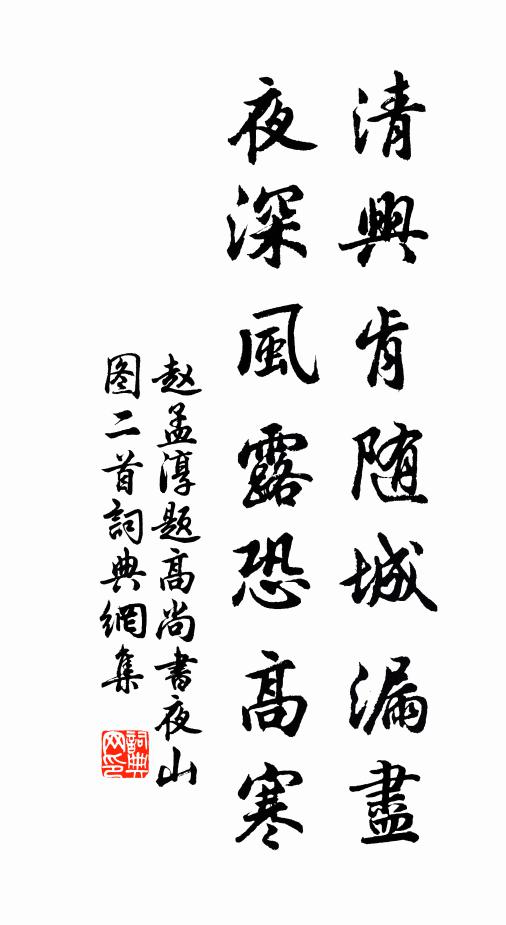 清興肯随城漏盡
夜深風露恐高寒
赵孟淳题高尚書夜山
图二首詞典網集
詞典
网印